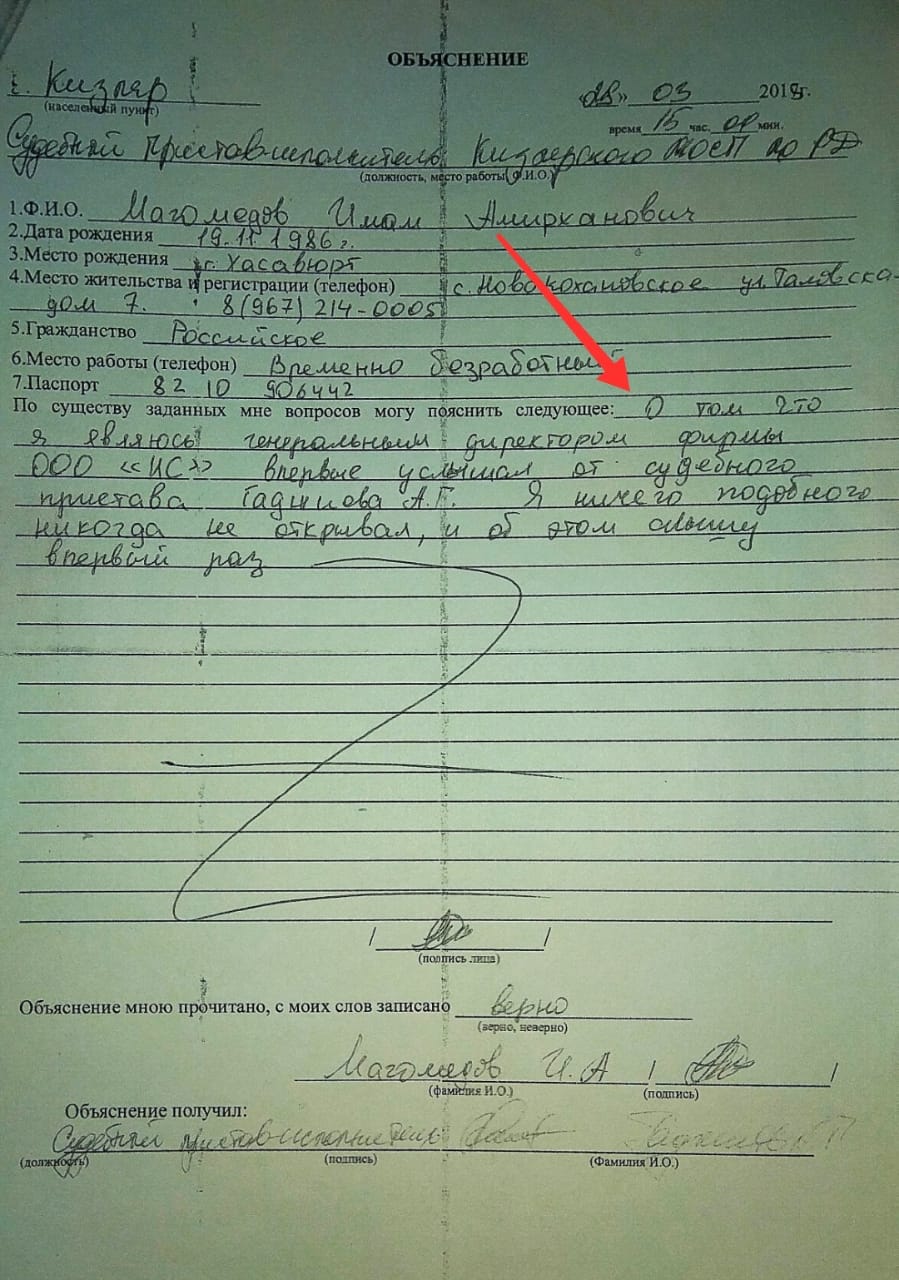 ОБЪЯСНЕНИЕ
г. Кизляр
(населенный пункт)
«28» 03 2018г.
время 15 час. 00 мин.
Судебный пристав-исполнитель Кизлярского МОСП по РД
(должность, место работы, Ф.И.О.)
1.Ф.И.О. Магомедов Имам Амирханович
2.Дата рождения 19.11.1986 г.
3.Место рождения г. Хасавюрт
4.Место жительства и регистрации (телефон) с. Новокохановское ул. Таловска-
дом 7. 8(967) 214-0005
5.Гражданство Российское
6.Место работы (телефон) Временно безработный
7.Паспорт 82 10 906442
По существу заданных мне вопросов могу пояснить следующее: О том что
я являюсь генеральным директором фирмы
ООО «ИС» впервые услышал от судебного
пристава Гаджиова А.Г. Я ничего подобного
никогда не открывал, и об этом слышу
впервый раз
(подпись лица)
Объяснение мною прочитано, с моих слов записано верно
(верно, неверно)
Магомедов И.А
(фамилия И.О.) (подпись)
Объяснение получил:
Судебный пристав-исполнитель
(должность) (подпись) (Фамилия И.О.)